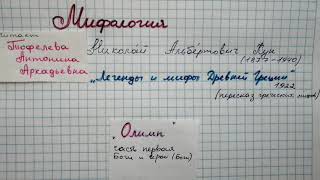 Мифология
Читает
Тюфелева
Антонина
Аркадьевна
Николай Альбертович Кун
(1877-1940)
„Легенды и мифы Древней Греции"
1922
(пересказ греческих мифов)
„Олимп"
часть первая
Боги и герои (Боги)